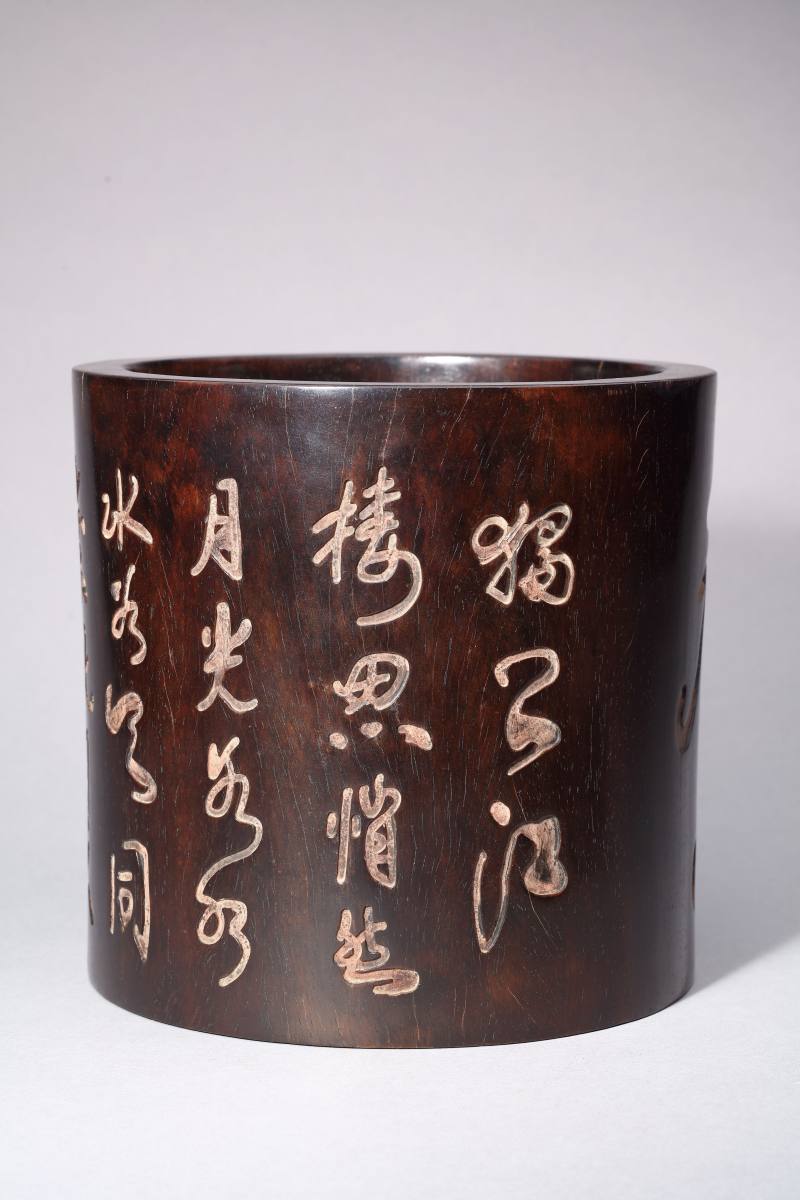 獨上江
樓思悄然
月光如水
水如天同